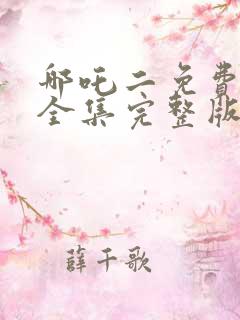 哪吒二免费
全集完整版
薛千歌